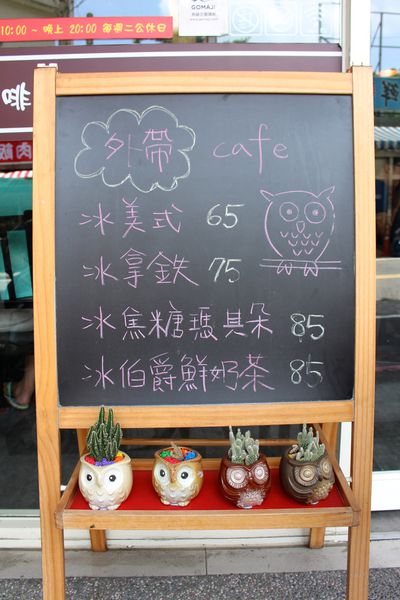 10:00 ~ 晚上 20:00 每週二公休日
GOMAJI
外帶 cafe
冰美式 65
冰拿鐵 75
冰焦糖瑪其朵 85
冰伯爵鮮奶茶 85